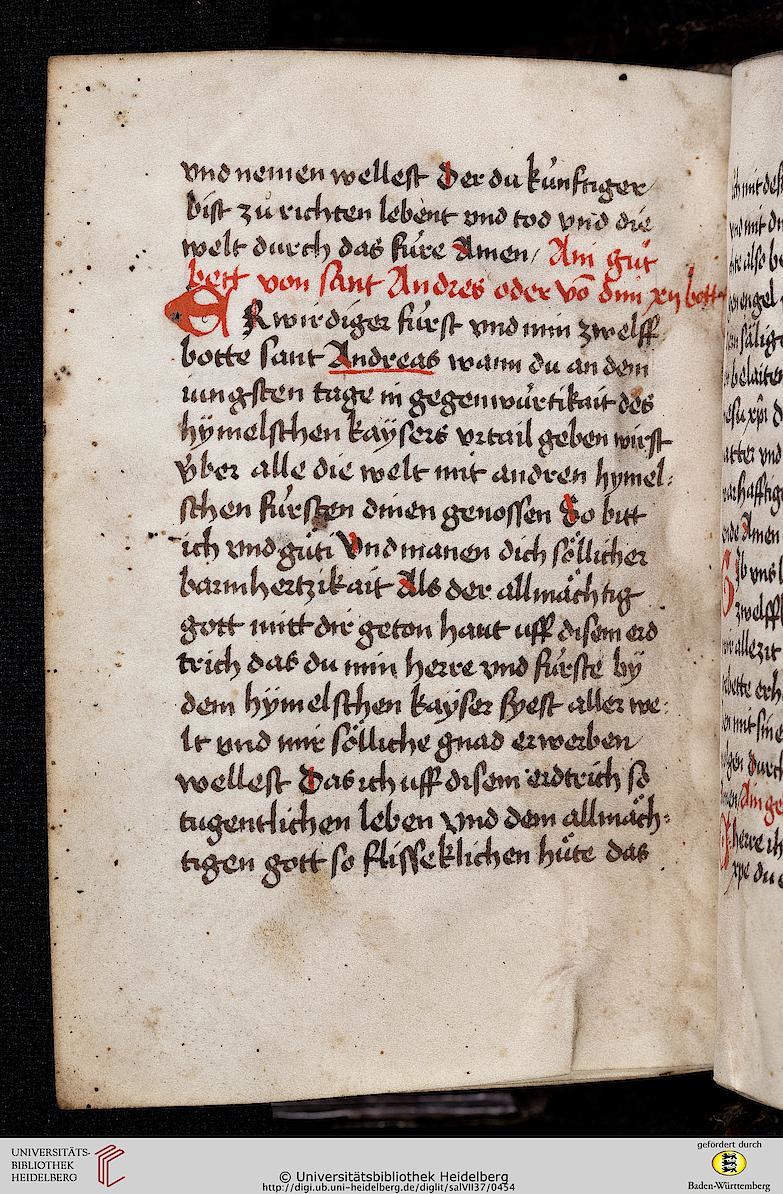 vnd nemen wellest Der du kúnftiger
bist zů richten lebent vnd tod vnd die
welt durch das fúre Amen / Ain gůt
bett von sant Andres oder vō dim xij botten
ERwirdiger fúrst vnd min zwelff
botte sant Andreas wann du an dem
iungsten tage in gegenwúrtikait des
hÿmelschen kaÿsers vrtail geben wirst
v́ber alle die welt mit andren hymel:
schen fúrsten dinen genossen So bitt
ich vnd gúti Vnd manen dich söllicher
barmhertzikait Als der allmächtig
gott mitt dir geton haut uff disem erd
trich das du min herre vnd fúrste bÿ
dem hÿmelschen kaÿser syest aller we:
lt vnd mir sölliche gnad erwerben
wellest Das ich uff disem erdtrich so
tugentlichen leben vnd dem allmäch:
tigen gott so flisseklichen hüte das
UNIVERSITÄTS-
BIBLIOTHEK
HEIDELBERG
© Universitätsbibliothek Heidelberg
http://digi.ub.uni-heidelberg.de/diglit/salVII37/0454
gefördert durch
Baden-Württemberg